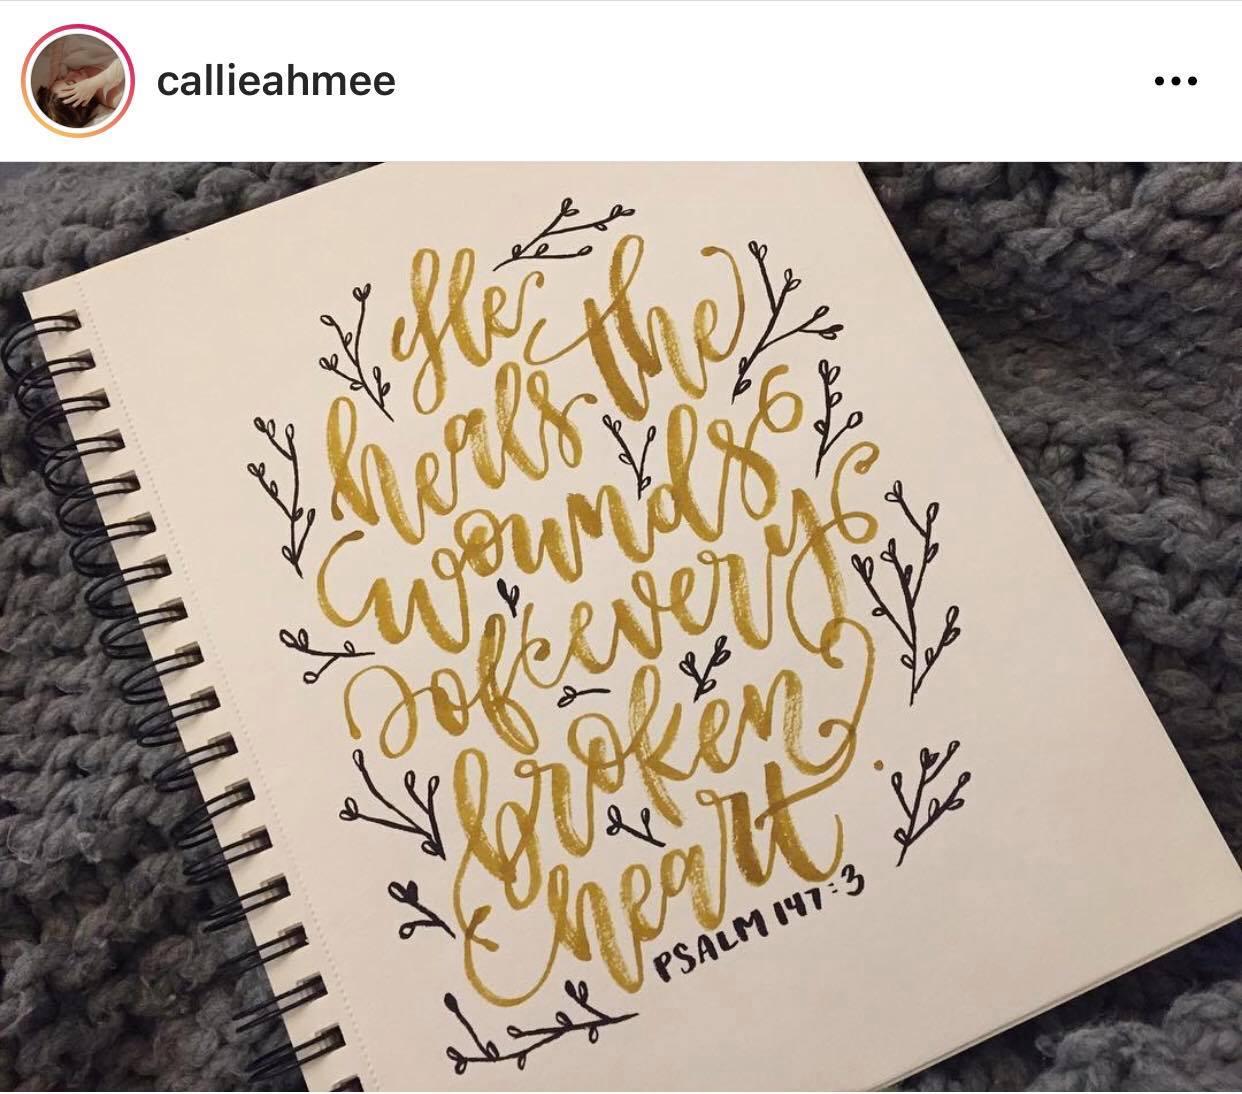 callieahmee
He the
heals
wounds
of every
broken
heart
PSALM 147:3